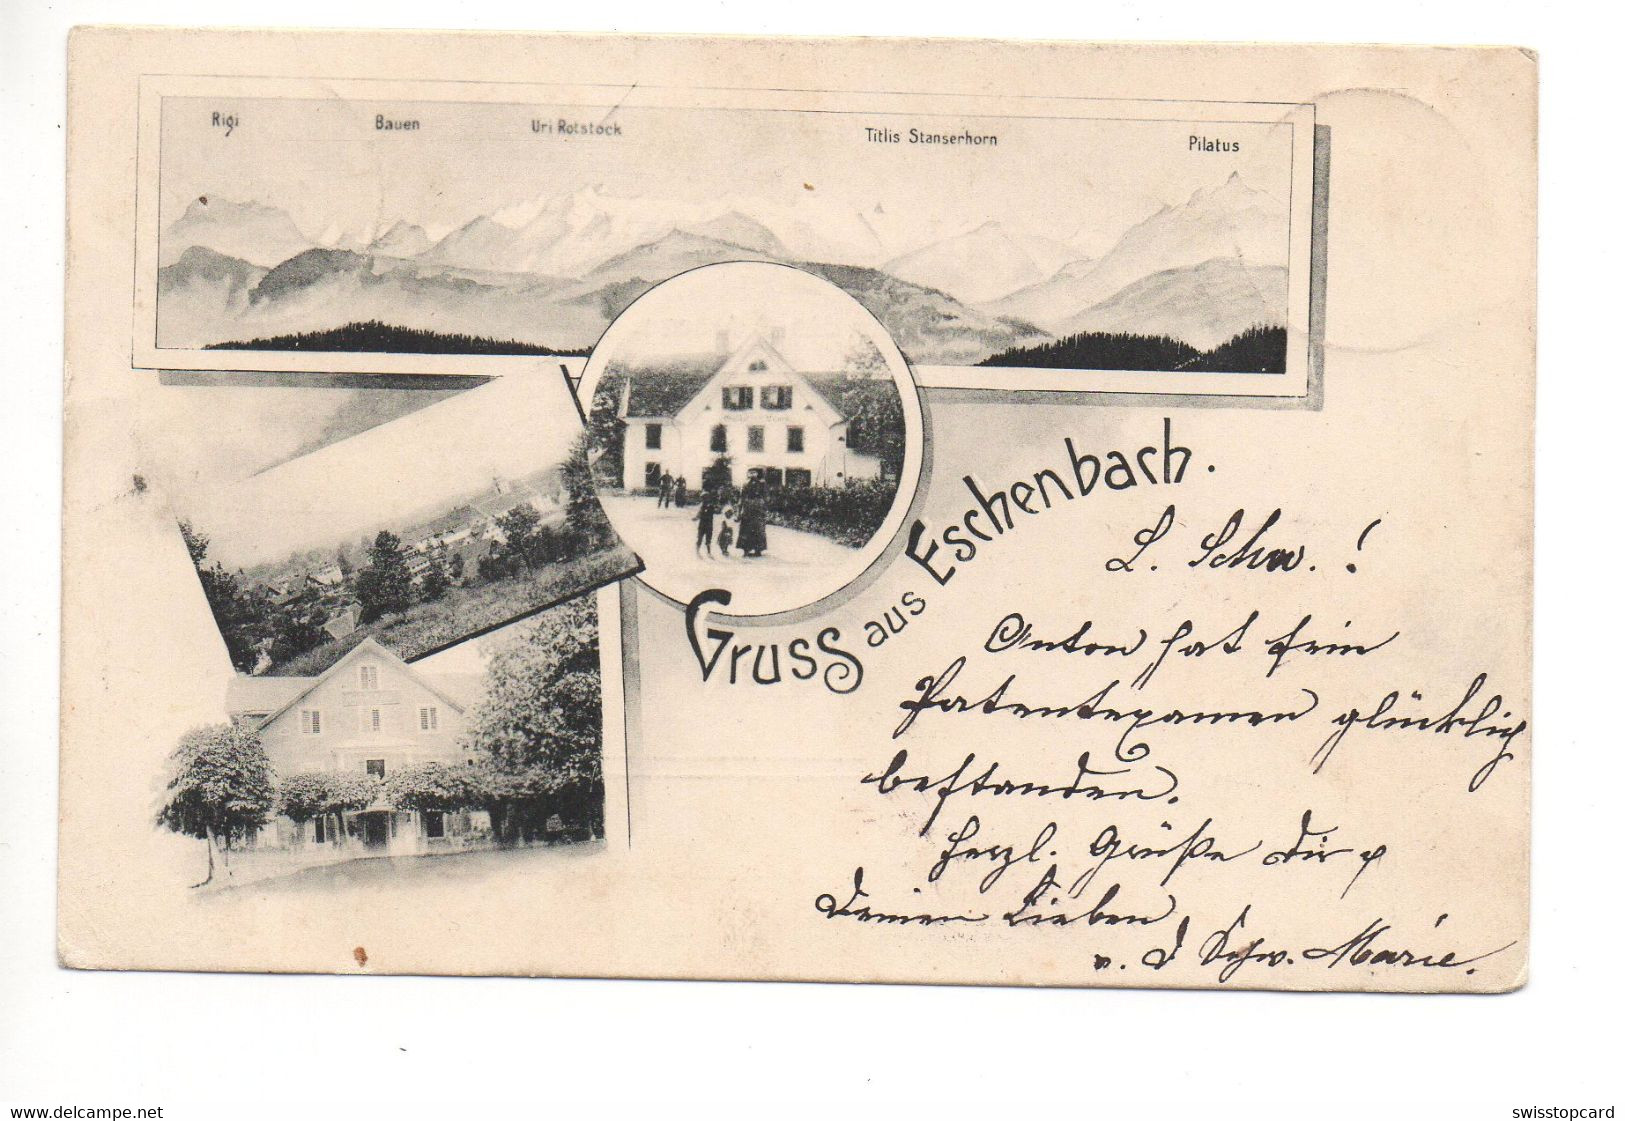 Rigi Bauen Uri Rotstock Titlis Stanserhorn Pilatus
Gruss aus Eschenbach.
L. Schw. !
Anton hat sein
Patentexamen glücklich
bestanden.
Herzl. Grüße Dir &
Deinen Lieben
v. d Schw. Marie.
www.delcampe.net
swisstopcard